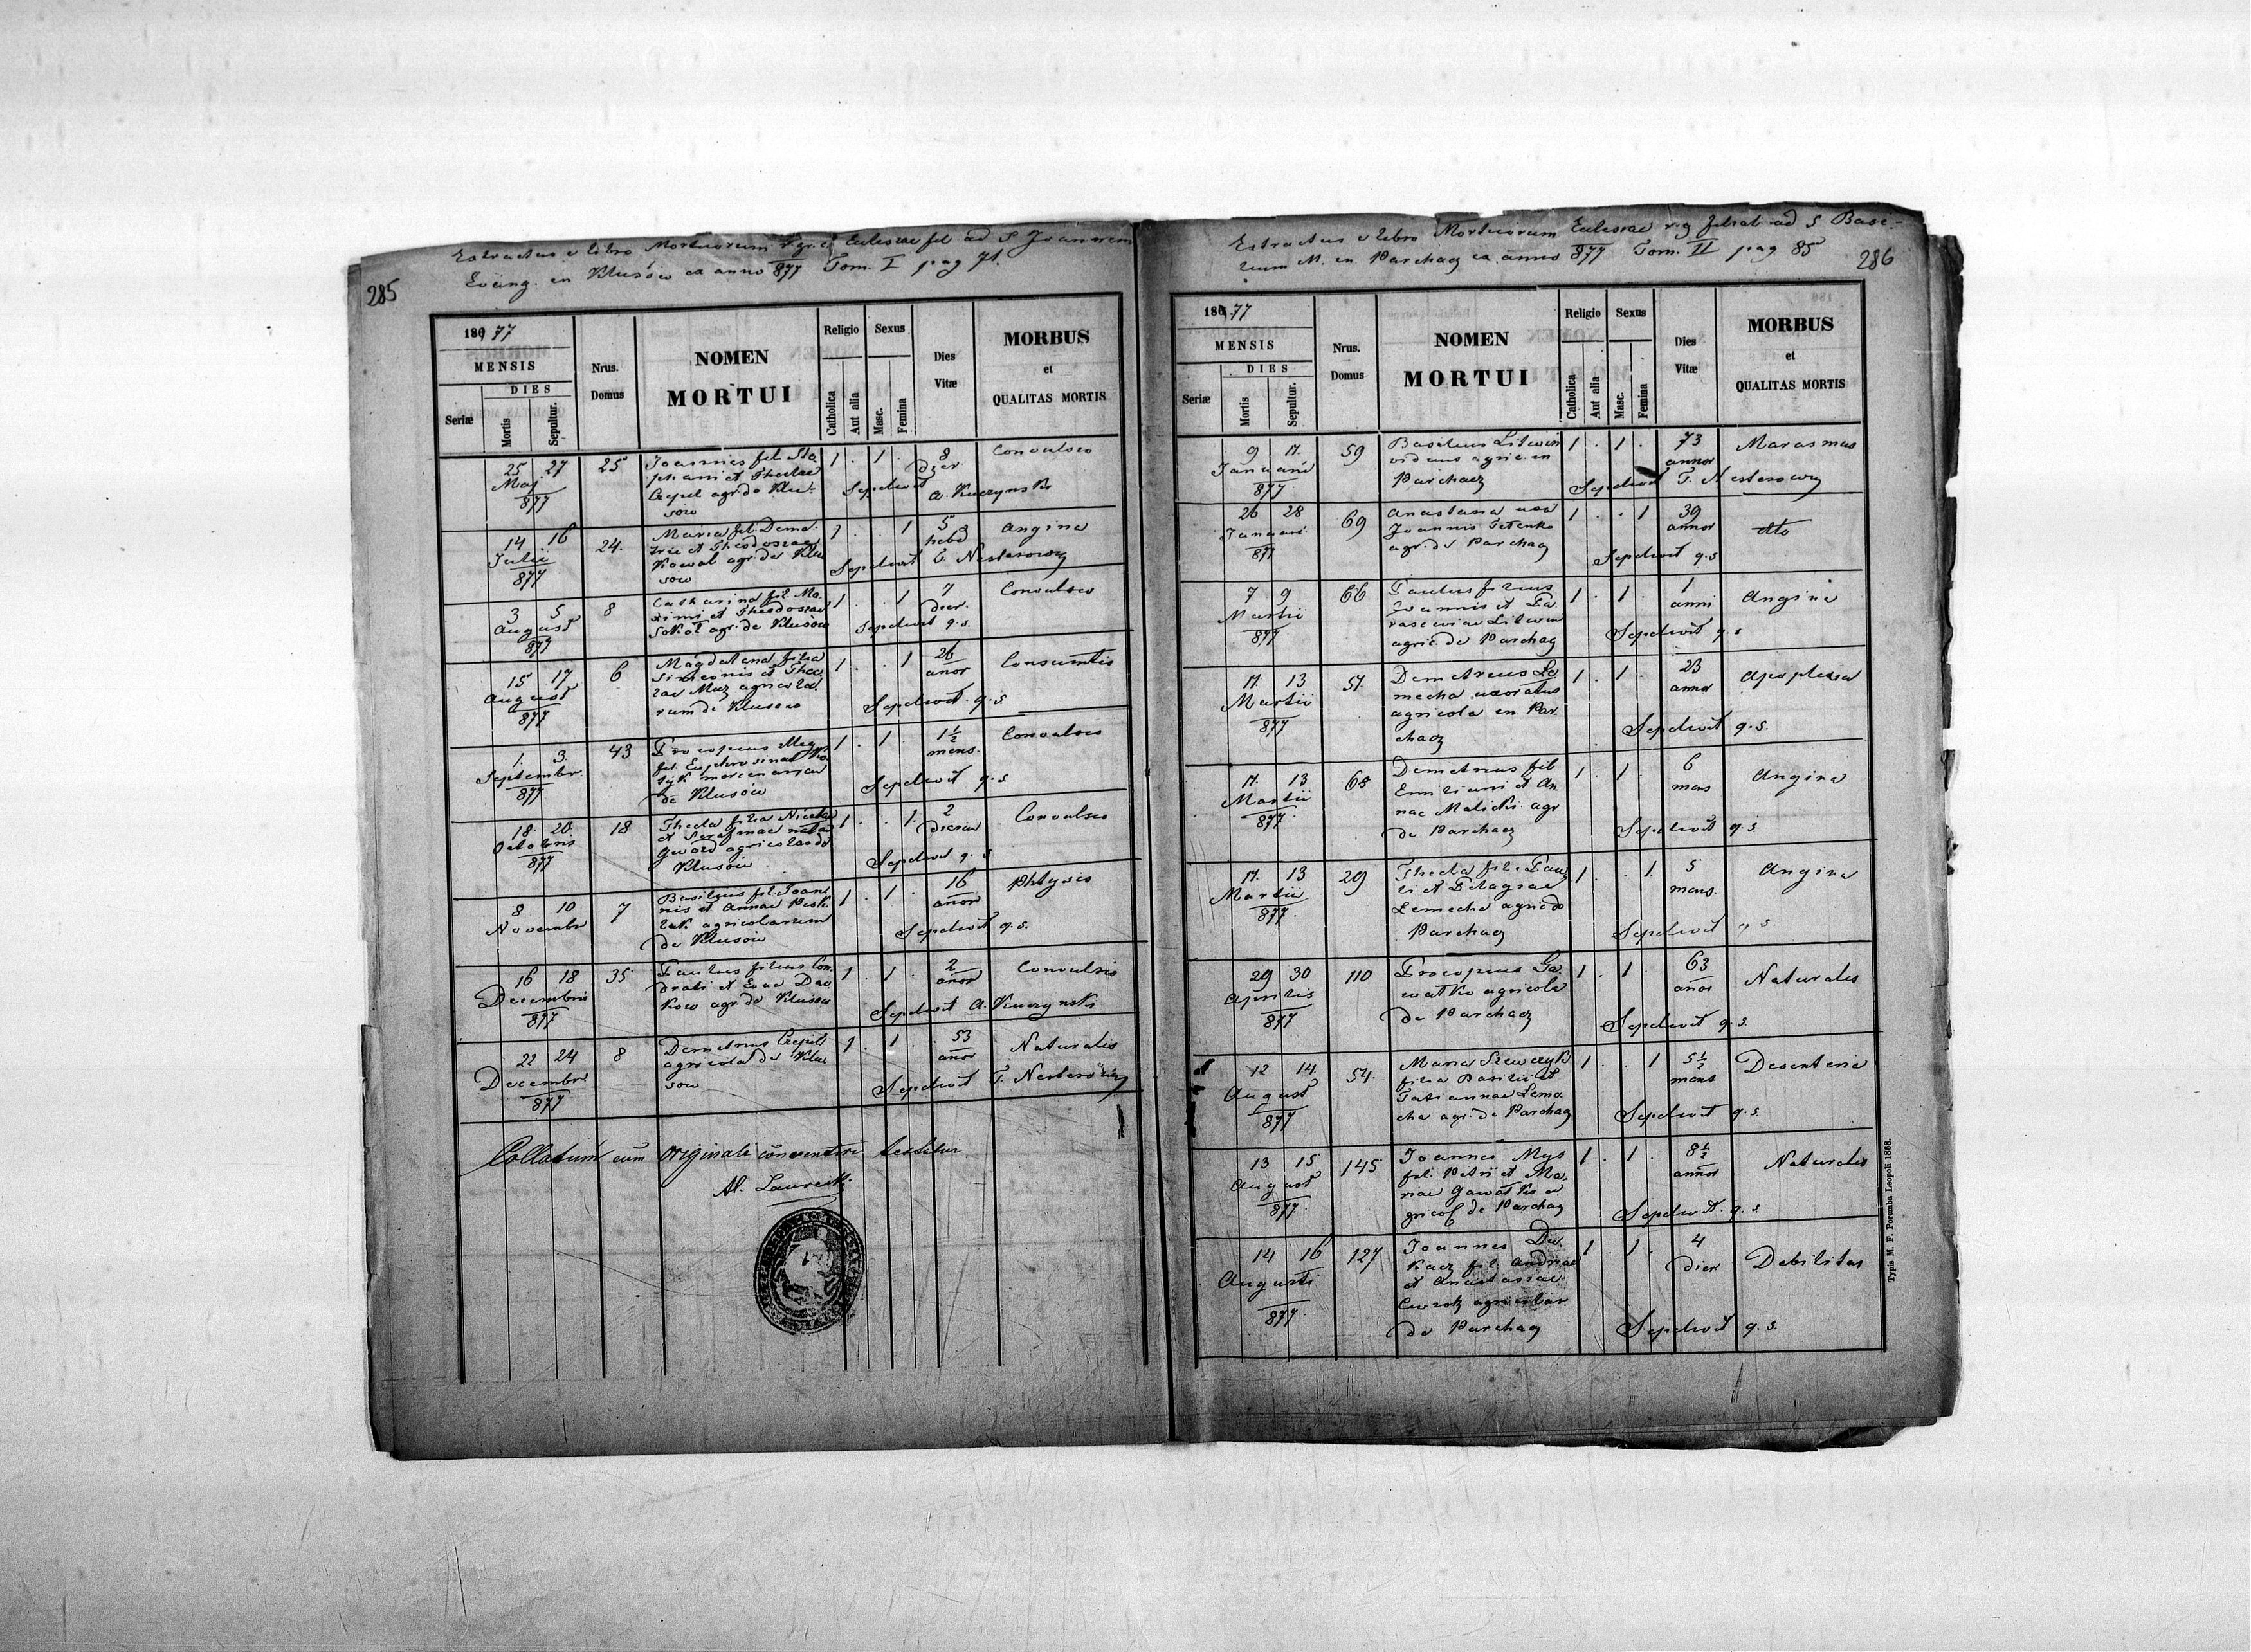 285
Extractus e libro Mortuorum r. gr. c. Eclesiae fil ad S Joannem
Evang. in Klusow ex anno 877 Tom. I pag 71.
1877
MENSIS
DIES
Seriæ
Mortis
Sepultur.
Nrus. Domus
NOMEN
MORTUI
Religio
Catholica
Aut alia
Sexus
Masc.
Femina
Dies
Vitæ
MORBUS
et
QUALITAS MORTIS
25 27 25 Joannes fil Ste 1 . 1 . 8 Convulsio
Maj phani et Theclae dier
877 Czepil agr. de Klu-
sow Sepelivit A. Kuczynski
14 16 24. Maria fil. Deme- 1 . . 1 5 Angina
Julii trii et Theodosiae hebd
877 Kowal agr. de Klu
sow Sepelivit T. Nesterowicz
3 5 8 Catharina fil. Ma- 1 . . 1 7 Convulsio
August ximi et Theodosiae dier.
877 Sokół agr. de Klusow Sepelivit q. s.
15 17 6 Magdalena filia 1 . . 1 26 Consumtis
August Simeonis et Thec anor
877 lae Muz agricola
rum de Klusow Sepelivit q. s.
1. 3. 43 Procopius illeg. 1 . 1 . 1½ Convulsio
Septembr. fil. Euphrosinae mens.
877 mercenariae
de Klusow Sepelivit q. s
18. 20. 18 Thecla filia Nicetae 1 . . 1. 2 Convulsio
Octobris et Serafinae dierum
877 agricolae de
Klusow Sepelivit q. s
8 10 7 Basilius fil. Joan 1 . 1 . 16 Phtysis
Novembr nis et Annae anor
agricolarum
de Klusow Sepelivit q. s.
16 18 35 Paulus filius Con- 1 . 1 . 2 Convulsio
Decembris drati et Evae Dac anor
877 kow agr. de Klusow Sepelivit A. Kuczynski
22 24 8 Demetrius Czepil 1 . 1 . 53 Naturalis
Decembr. agricola de Klu anor
877 sow Sepelivit T. Nesterowicz
Collatum cum originali convenire testitur
Al. Laurecki
286
Extractus e libro Mortuorum Eclesiae r. g filial ad S Basi-
lium M. in Parchacz ex anno 877 Tom. II pag 85
1877
MENSIS
DIES
Seriæ
Mortis
Sepultur.
Nrus.
Domus
NOMEN
MORTUI
Religio
Catholica
Aut alia
Sexus
Masc.
Femina
Dies
Vitæ
MORBUS
et
QUALITAS MORTIS
9 11. 59 Basilius Litwin 1 . 1 . 73 Marasmus
Januarii viduus agric. in annor
877 Parchacz Sepelivit T. Nesterowicz
26 28 69 Anastasia uxor 1 . . 1 39 dto
Januari Joannis Petenko annor
877 agr. de Parchacz Sepelivit q. s
7 9 66 Paulus filius 1 . 1 . 1 Angina
Martii Joannis et Pa anni
877 rasceviae Litwin
agric. de Parchacz Sepelivit q. s
11. 13 51. Demetrius Le 1 . 1 . 23 Apoplexia
Martii mecha uxoratus annor
877 agricola in Par.
chacz Sepelivit q. s.
11. 13 68 Demetrius fil 1 . 1 . 6 Angina
Martii Emiliani et An mens
877 nae Malicki agr
de Parchacz Sepelivit q. s.
11. 13 29 Thecla fil. Pau 1 . . 1. 5 Angina
Martii li et Pelagiae mens.
877. Lemecha agric. de
Parchacz Sepelivit q s
29 30 110 Procopius Ga 1 . 1 . 63 Naturalis
Aprilis watko agricola anor
877 de Parchacz Sepelivit q. s.
12 14. 54. Maria Szewczyk 1 . . 1 5½ Desenteria
August filia Basilii et mens
877 Tatiannae Leme
cha agr. de Parchacz Sepelivit q. s.
13 15 145 Joannes Mys 1 . 1 . 8½ Naturalis
August fil. Petri et Ma annor
877. riae Gawatko a
gricol de Parchacz Sepelivit. q. s.
14 16 127 Joannes Du. 1 . 1 . 4 Debilitas
Augusti kacz fil. Andreae dier
877. et Anastasiae
agricolar
de Parchacz Sepelivit q. s.
Typis M. F. Poremba Leopoli 1868.